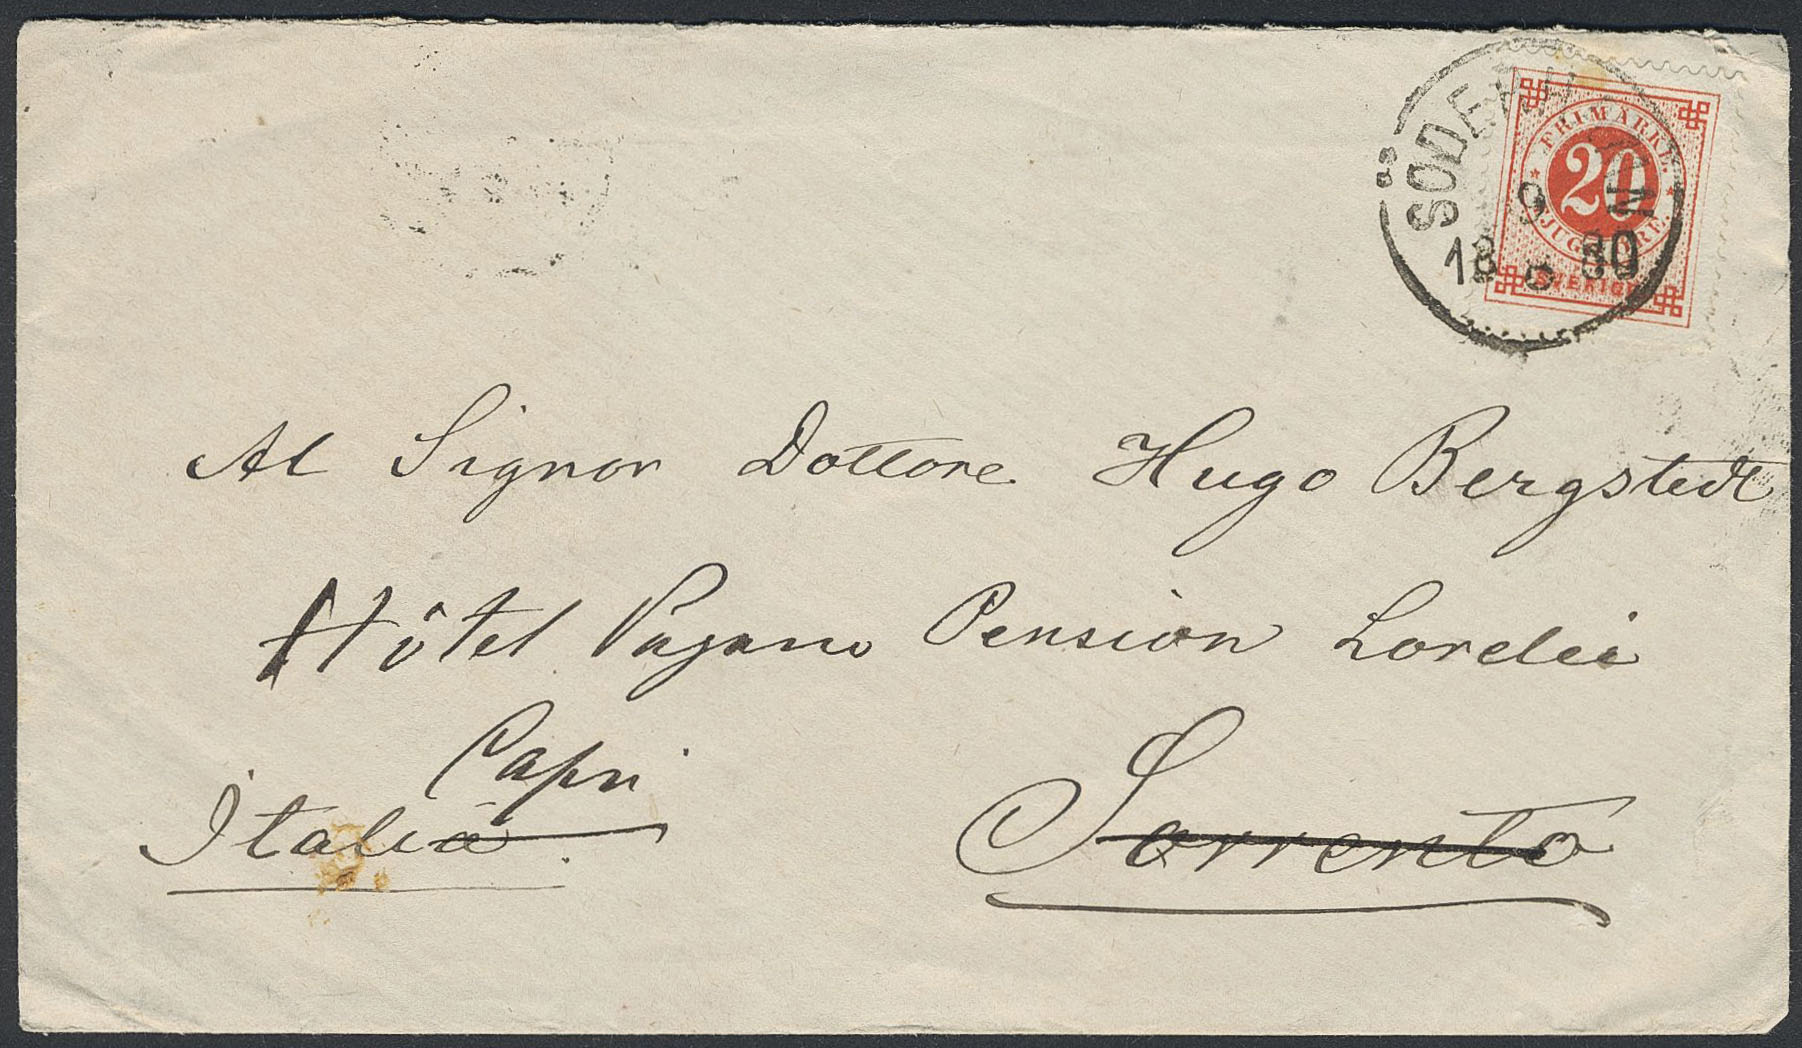 FRIMÄRKE
20
TJUGO ÖRE
SVERIGE
9
18 6 80
Al Signor Dottore Hugo Bergstedt
Hôtel Pagano Pension Lorelei
Capri
Italia
Sorrento